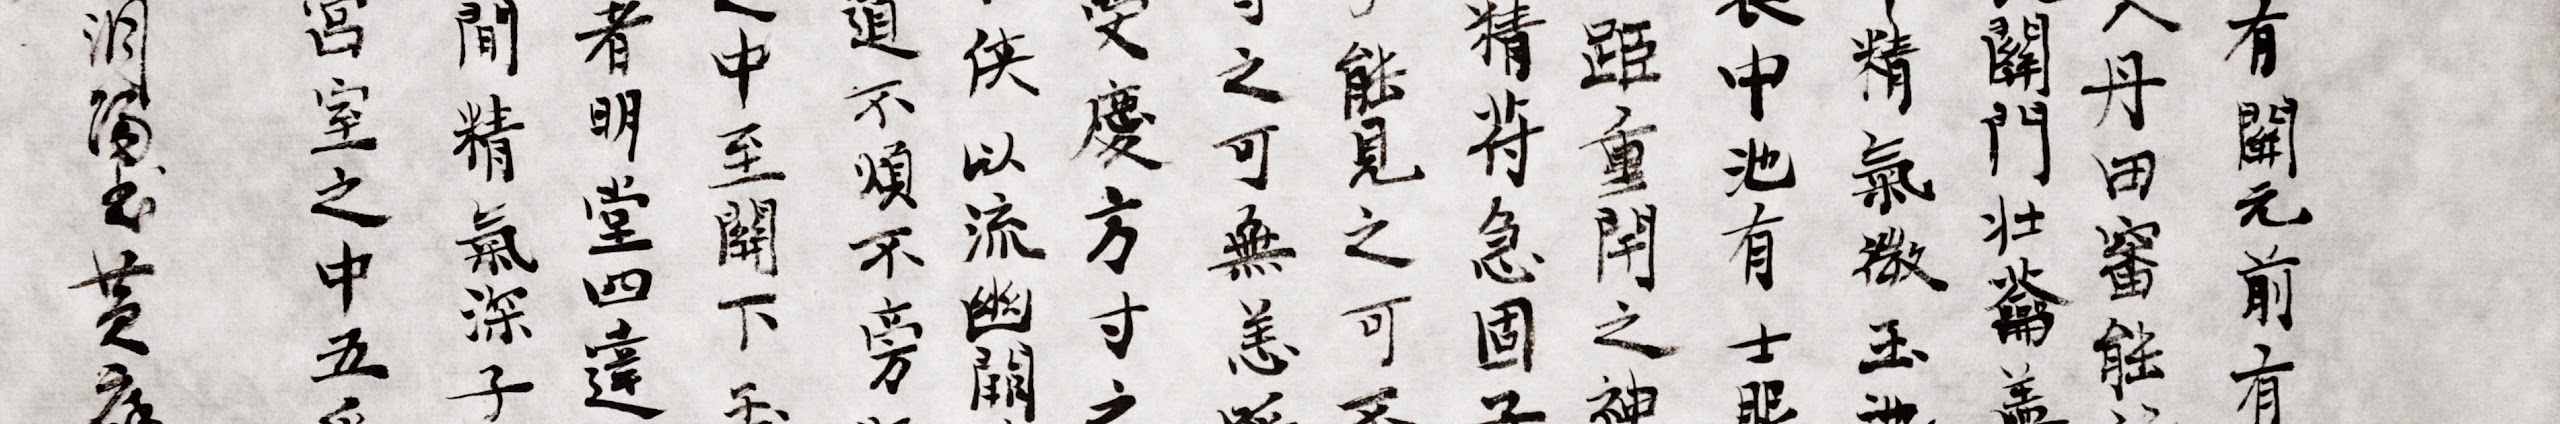 有關元前有
入丹田審能
關門壯籥蓋
精氣微玉池
衣中池有士服
距重閉之神
精符急固子
能見之可不
之可無恙
受慶方寸之
俠以流幽闕
道不煩不旁
之中至關下玉
者明堂四達
間精氣深子
宮室之中五采
黃庭